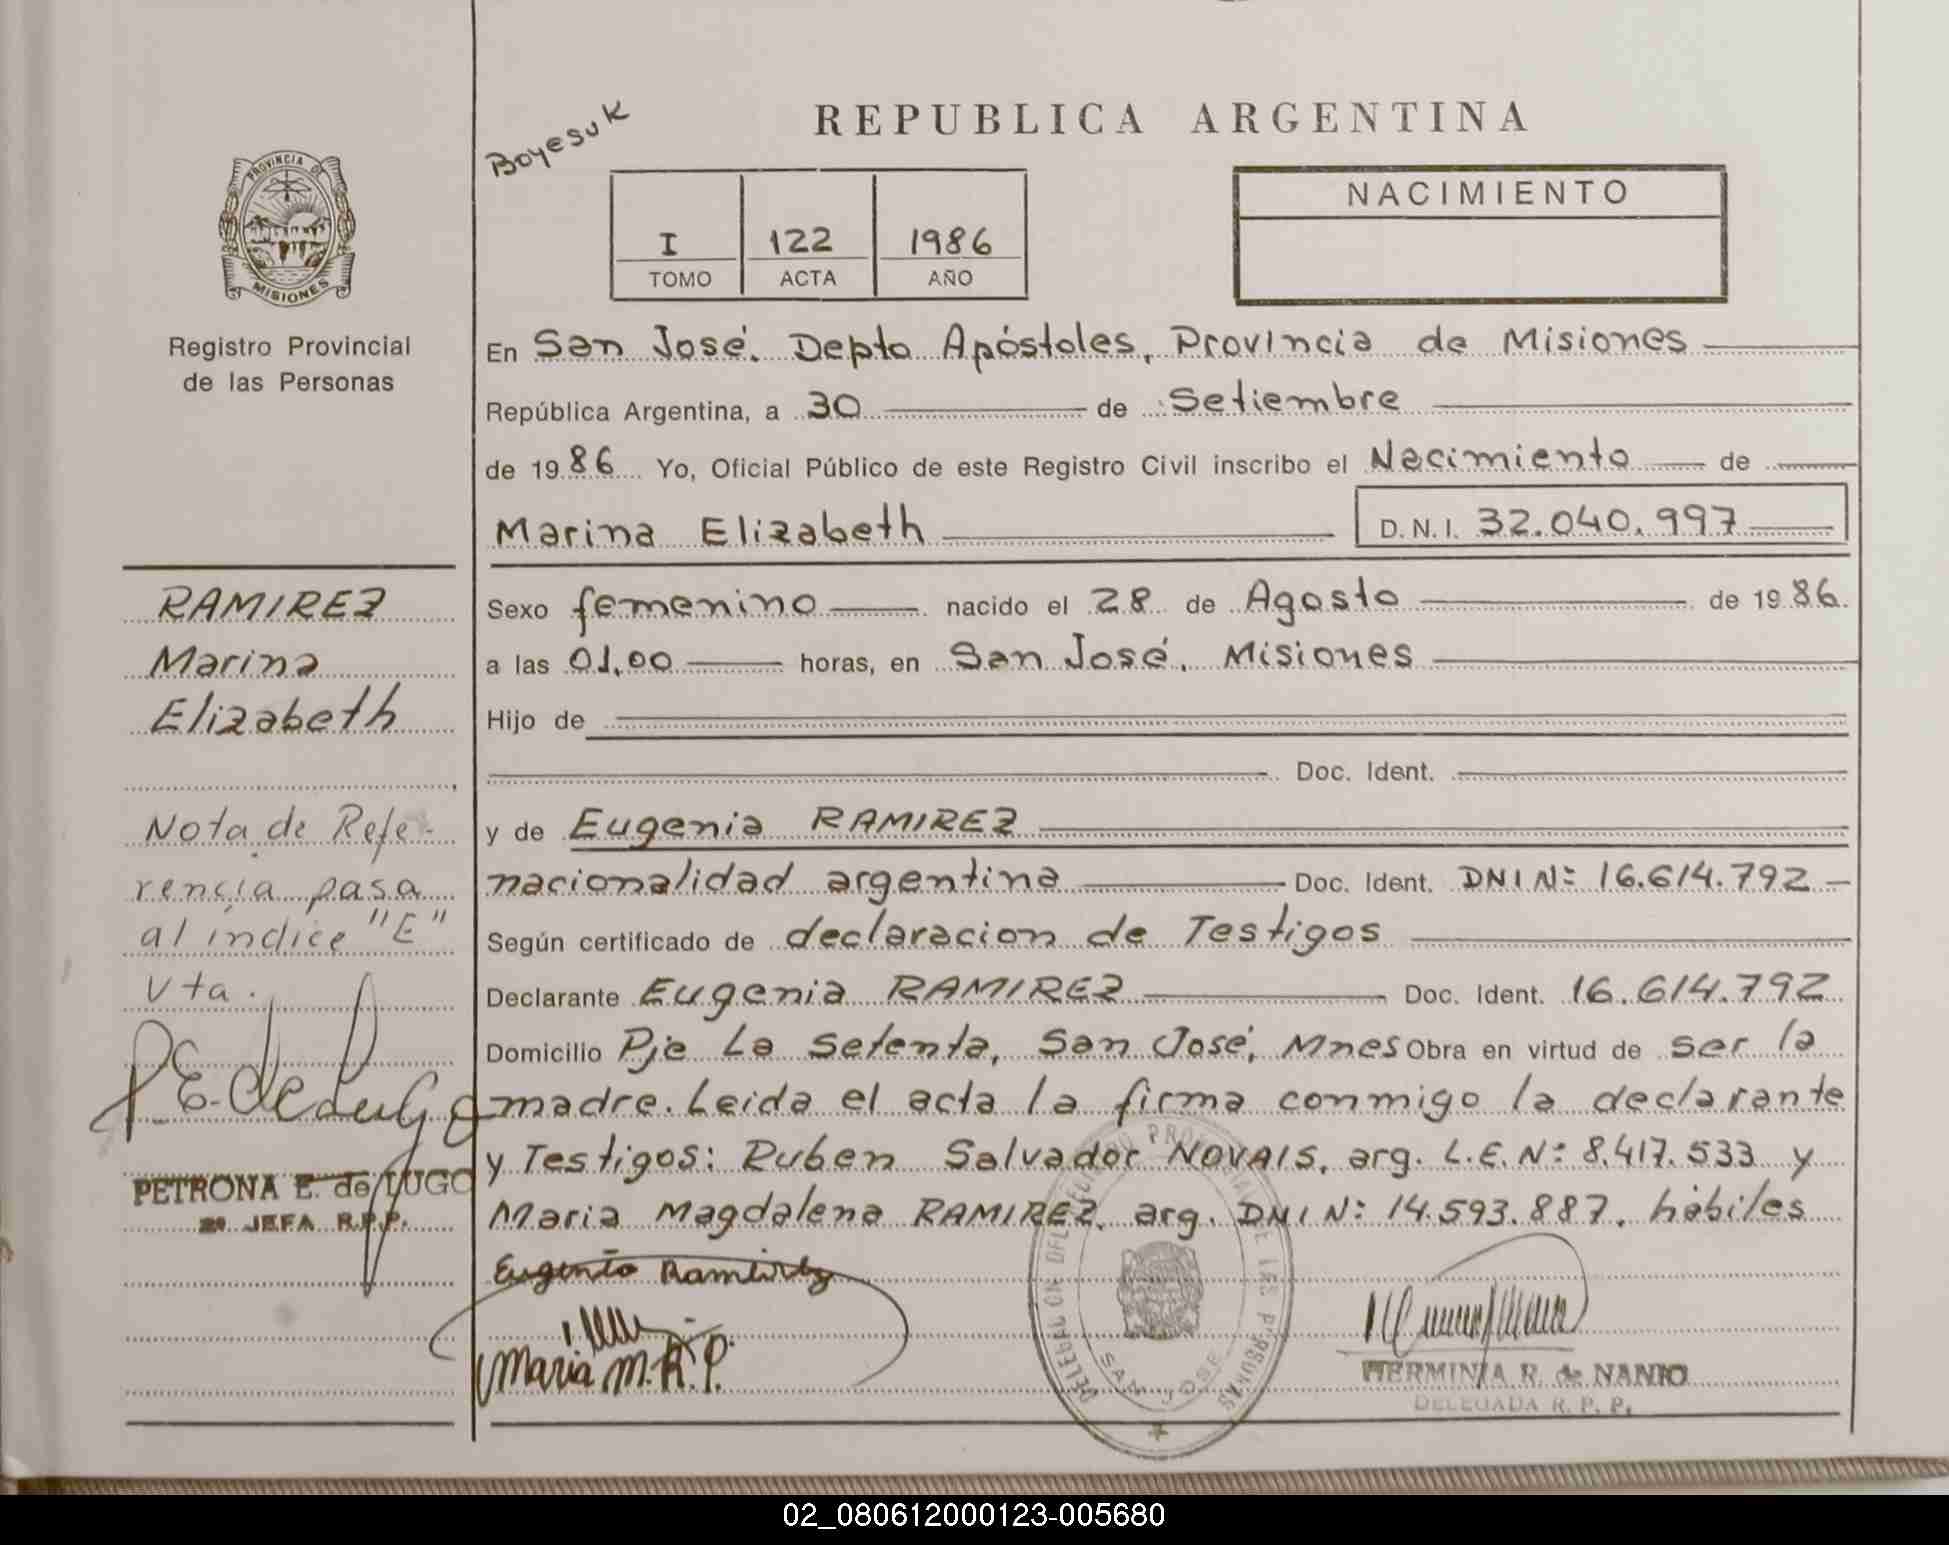 Boyesuk
REPUBLICA ARGENTINA
PROVINCIA DE
MISIONES
Registro Provincial
de las Personas
I 122 1986
TOMO ACTA AÑO
NACIMIENTO
En San José. Depto Apóstoles, Provincia de Misiones
República Argentina, a 30 de Setiembre
de 1986 Yo, Oficial Público de este Registro Civil inscribo el Nacimiento de
Marina Elizabeth D.N.I. 32.040.997
RAMIREZ
Marina
Elizabeth
Nota de Refe-
rencia pasa
al indice "E"
Vta.
P E. de Lugo
PETRONA E. de LUGO
2a JEFA R.P.P.
Sexo femenino nacido el 28 de Agosto de 1986.
a las 01,00 horas, en San José, Misiones
Hijo de
Doc. Ident.
y de Eugenia RAMIREZ
nacionalidad argentina Doc. Ident. DNI Nº 16.614.792
Según certificado de declaracion de Testigos
Declarante Eugenia RAMIREZ Doc. Ident. 16.614.792
Domicilio Pje La Setenta, San José, Mnes Obra en virtud de ser la
madre. Leida el acta la firma conmigo la declarante
y Testigos: Ruben Salvador NOVAIS, arg. L.E. Nº 8.417.533 y
Maria Magdalena RAMIREZ, arg. DNI Nº 14.593.887. hábiles
Eugenia Ramirez
Maria M. R. P.
DELEGACION DEL REGISTRO PROVINCIAL DE LAS PERSONAS
SAN JOSE
HERMINIA R. de NANIO
DELEGADA R. P. P.
02_080612000123-005680